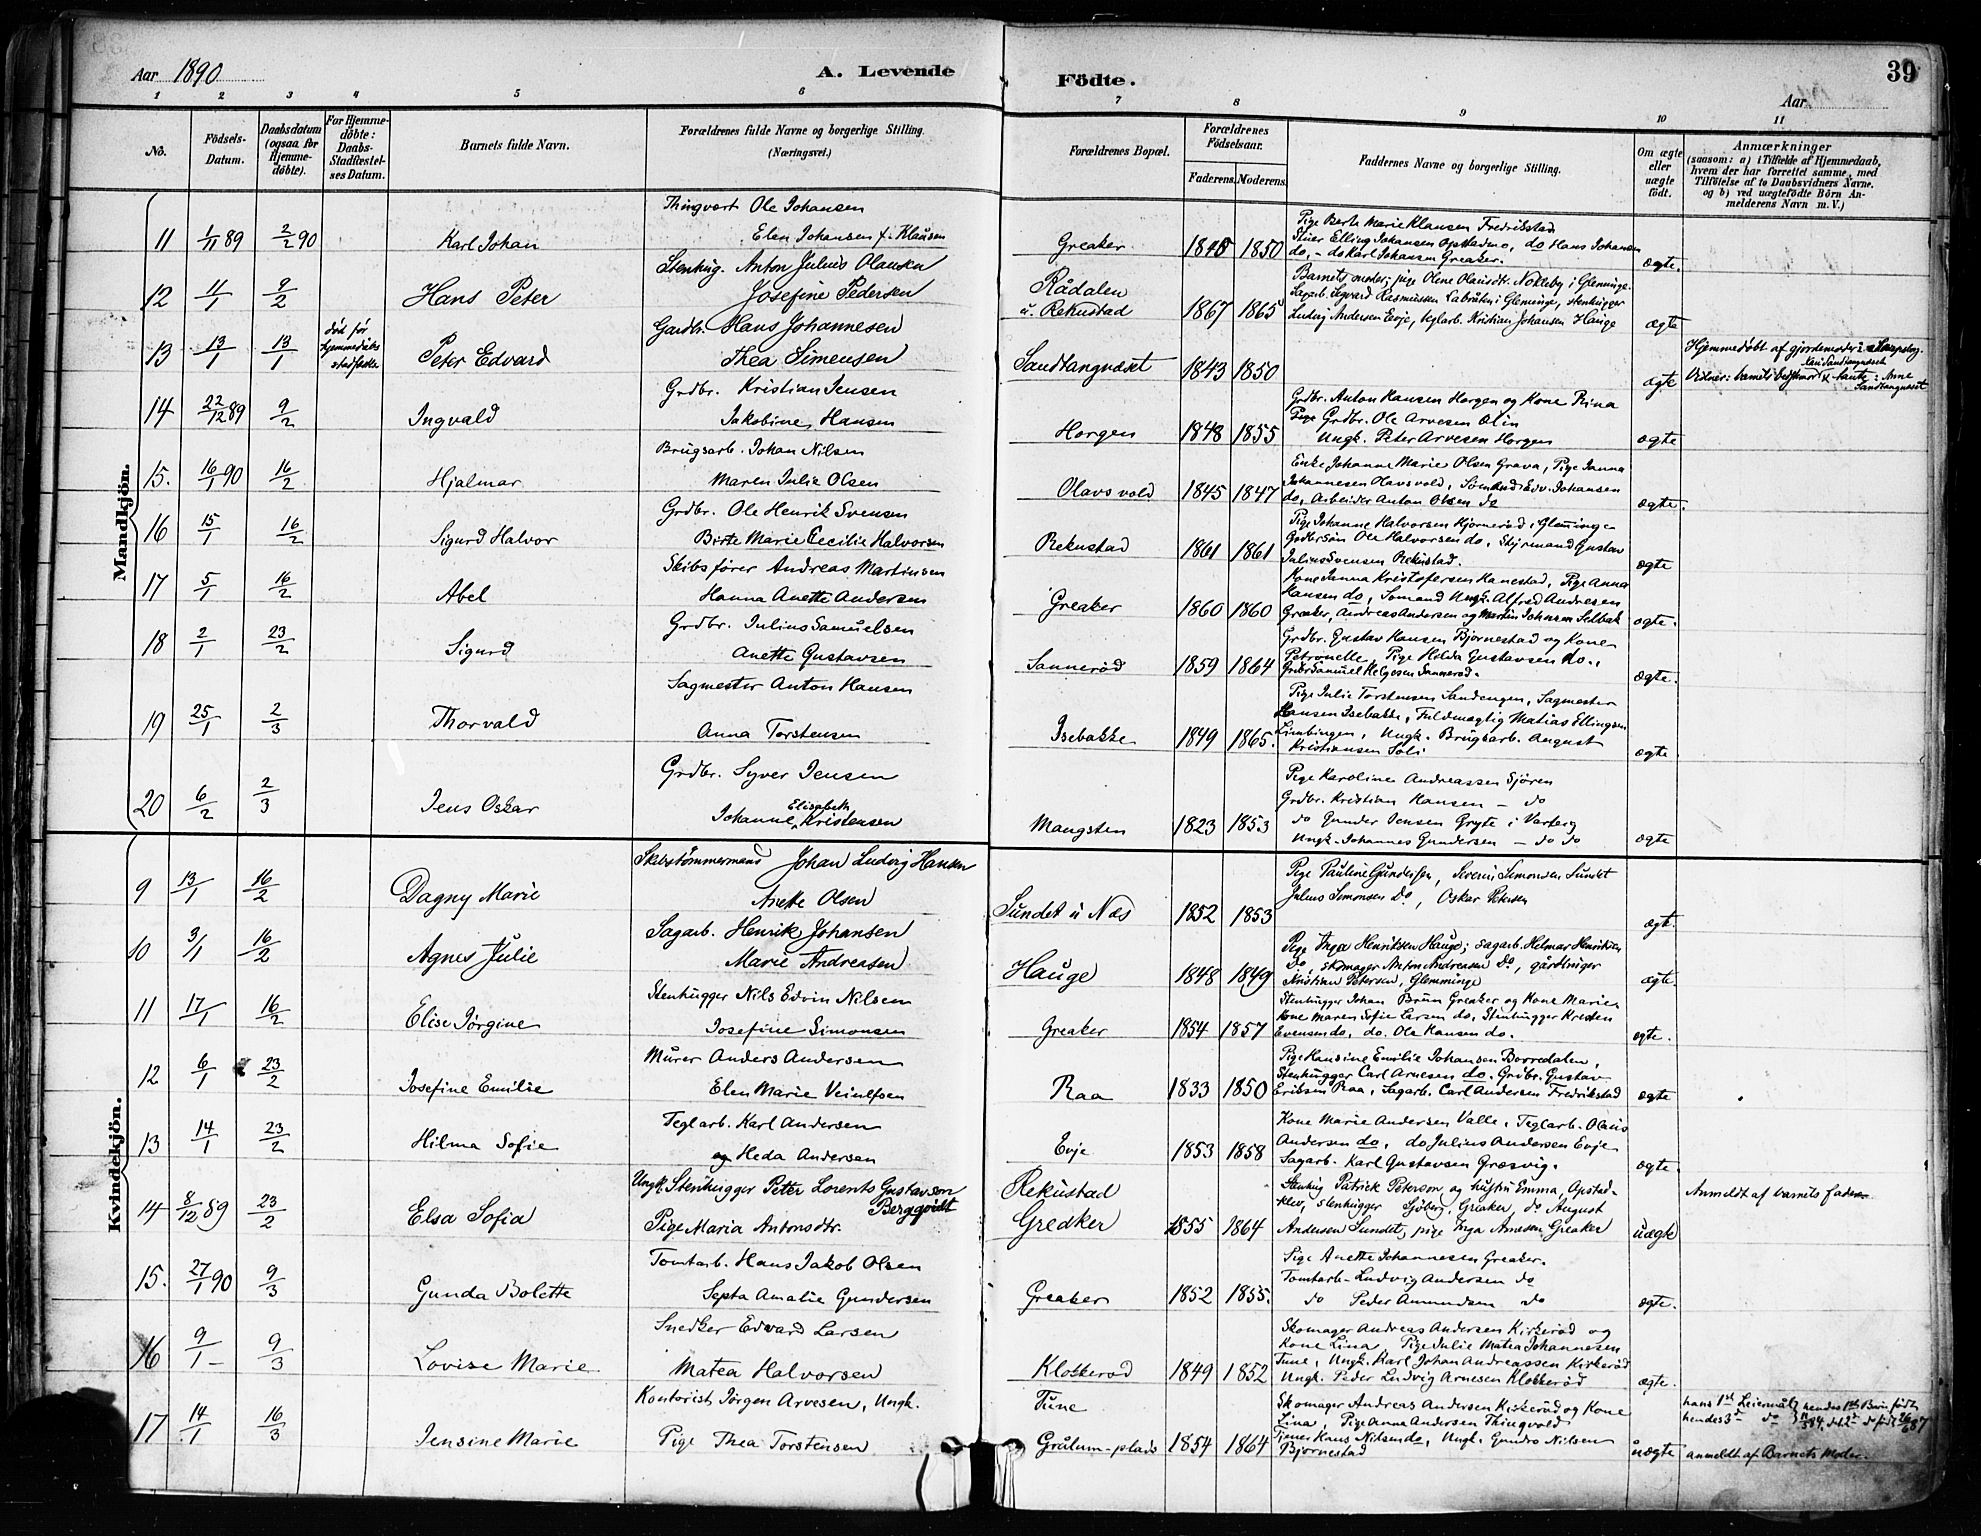 Aar 1890
A. Levende
Födte.
39
Aar
1 2 3 4 5 6 7 8 9 10 11
No.
Födsels-Datum.
Daabsdatum (ogsaa for Hjemme-døbte).
For Hjemme-døbte: Daabs-Stadfæstel-ses Datum.
Barnets fulde Navn.
Forældrenes fulde Navne og borgerlige Stilling. (Næringsvei.)
Forældrenes Bopæl.
Forældrenes Födselsaar.
Faderens. Moderens.
Faddernes Navne og borgerlige Stilling.
Om ægte eller uægte født.
Anmærkninger
(saasom: a) i Tilfælde af Hjemmedaab, hvem der har forrettet samme, med Tilföielse af to Daabsvidners Navne, og b) ved uægtefödte Börn An-melderens Navn m. V.)
Mandkjön.
11 1/11 89 2/2 90 Karl Johan
Thingvert Ole Johansen
Elen Johansen f. Klausen
Greaker 1848 1850
Pige Berte Marie Klausen Fredrikstad
Elling Johansen Opstadmo, do Hans Johansen
do, - do Karl Johansen Greaker.
ægte.
12 11/1 9/2 Hans Peter
Stenhug. Anton Julius Olausen
Josefine Pedersen
Rådalen
u. Rekustad 1867 1865
Barnets moder, pige Olene Olausdr. Nokleby i Glemminge
Sagarb. Sigvard Rasmussen Labråten i Glemminge, stenhugger
Ludvig Andersen Evje, teglarb. Kristian Johansen Hauge
ægte
13 13/1 13/1 død før hjemmedåbs stadfæst. Peter Edvard
Gardbr. Hans Johannesen
Thea Simensen
Sandtangnæset 1843 1850
ægte
Hjemmedøbt af gjordemoder
Vidner: barnets bedstemor & tante: Anne
Sandtangnæset
14 22/12 89 9/2 Ingvald
Grdbr. Kristian Jensen
Jakobine Hansen
Horgen 1848 1855
Grdbr. Anton Hansen Horgen og Kone Rina
Pige Grdbr. Ole Arvesen Olin
Ungk. Peter Arvesen Horgen
ægte
15. 16/1 90 16/2 Hjalmar
Brugsarb. Johan Nilsen
Maren Julie Olsen
Olavsvold 1845 1847
Enke Johanne Marie Olsen Grava, Pige Janna
Johannesen Olavsvold, Sømand Edv. Johansen
do, Arbeider Anton Olsen do
ægte.
16 15/1 16/2 Sigurd Halvor
Grdbr. Ole Henrik Svensen
Birte Marie Cecilie Halvorsen
Rekustad 1861 1861
Pige Johanne Halvorsen Hjornerød i Glemminge
Grdbrsøn Ole Halvorsen do, Styrmand Gustav
Julius Svensen Rekustad.
ægte
17 5/1 16/2 Abel
Skibsfører Andreas Martinsen
Hanna Anette Andersen
Greaker 1860 1860
Kone Janna Kristofersen Hanestad, Pige Anna
Hansen do, Sømand Ungk. Alfred Andresen
Greaker, Andreas Andersen og Martin Johansen Selbak
ægte.
18 2/1 23/2 Sigurd
Grdbr. Julius Samuelsen
Anette Gustavsen
Sannerød 1859 1864
Grdbr. Gustav Hansen Bjørnestad og Kone
Petronelle, Pige Hilda Gustavsen do.,
Grdbr Samuel Helgesen Sannerød.
ægte.
19 25/1 2/3 Thorvald
Sagmester Anton Hansen
Anna Torstensen
Isebakke 1849 1865.
Pige Julie Torstensen Sandengen, Sagmester
Hansen Isebakke, Fuldmægtig Matias Ellingsen
Ungk. Brugsarb. August
Kristiansen Soli
ægte
20 6/2 2/3 Jens Oskar
Grdbr. Syver Jensen
Elisabeth
Johanne Kristensen
Mangsten 1823 1853
Pige Karoline Andreassen Sjøren
Grdbr. Kristian Hansen - do
do Gunder Jensen Gryte i Varteig
Ungk. Johannes Gundersen - do do
ægte
Kvindekjön.
9 13/1 16/2 Dagny Marie
Skibstømmermand Johan Ludvig Hansen
Anette Olsen
Sundet u Næs 1852 1853
Pige Pauline Gundersen, Severin Simonsen Sundet
Julius Simonsen Do, Oskar Petersen
ægt.
10 3/1 16/2 Agnes Julie
Sagarb. Henrik Johansen
Marie Andreasen
Hauge 1848 1849
Pige Inga Henriksen Hauge; sagarb. Helmar Henriksen
Do, skomager Anton Andreasen Do, gårdbruger
Kristian Petersen, Glemminge
ægte.
11 17/1 16/2 Elise Jørgine
Stenhugger Nils Edvin Nilsen
Josefine Simonsen
Greaker 1854 1857
Stenhugger Johan Brun Greaker og Kone Marie,
Kone Maren Sofie Larsen do, Stenhugger Kresten
Evensen do, do. Ole Hansen do.
ægte.
12 6/1 23/2 Josefine Emilie
Murer Anders Andersen
Elen Marie Veinelfsen
Raa 1833 1850
Pige Hansine Emilie Johansen Borredalen,
Stenhugger Carl Arnesen do. Grdbr. Gustav
Eriksen Raa, Sagarb. Carl Andersen Fredrikstad
ægte
13 14/1 23/2 Hilma Sofie
Teglarb. Karl Andersen
og Heda Andersen
Evje 1853 1858
Kone Marie Andersen Valle, Teglarb. Olaus
Andersen do, do Julius Andersen Evje
Sagarb. Karl Gustavsen Græsvig.
ægte.
14 8/12 89 23/2 Elsa Sofia
Ungk. Stenhugger Peter Lorents Gustavson
Bergqvist
Pige Maria Antonsdtr.
Rekustad
Greåker 1855 1864
Stenhug Patrick Peterson og hustru Emma, Opstad-
klev, stenhugger Sjøberg, Greaker, do August
Andersen Sundet, pige Inga Arnesen Greaker
uægte
Anmeldt af barnets fader
15. 27/1 90 9/3 Gunda Bolette
Tomtarb. Hans Jakob Olsen
Septa Amalie Gundersen
Greaker 1852 1855.
Pige Anette Johannesen Greaker.
Tomtarb. Ludvig Andersen do
do Peder Amundsen do
ægte.
16 9/1 - 9/3 Lovise Marie
Snedker Edvard Larsen
Matea Halvorsen
Klokkerød 1849 1852
Skomager Andreas Andersen Kirkerød og
Kone Lina, Pige Julie Matea Johannesen
Tune, Ungk. Karl Johan Andreassen Kirkerød
Ungk. Peder Ludvig Arnesen Klokkerød
ægte.
17 14/1 16/3 Jensine Marie
Kontorist Jørgen Arvesen, Ungk.
Pige Thea Torstensen
Tune
Grålum-plads 1854 1864
Skomager Andreas Andersen Kirkerød og Kone
Lina, Pige Anne Andersen Thingvold
Tjener Hans Nilsen do, Ungk. Gundro Nilsen
Bjørnestad
uægte
hans 1st Leiermål, hendes 1ste Barn født
hendes 3d do
anmeldt af Barnets Moder.